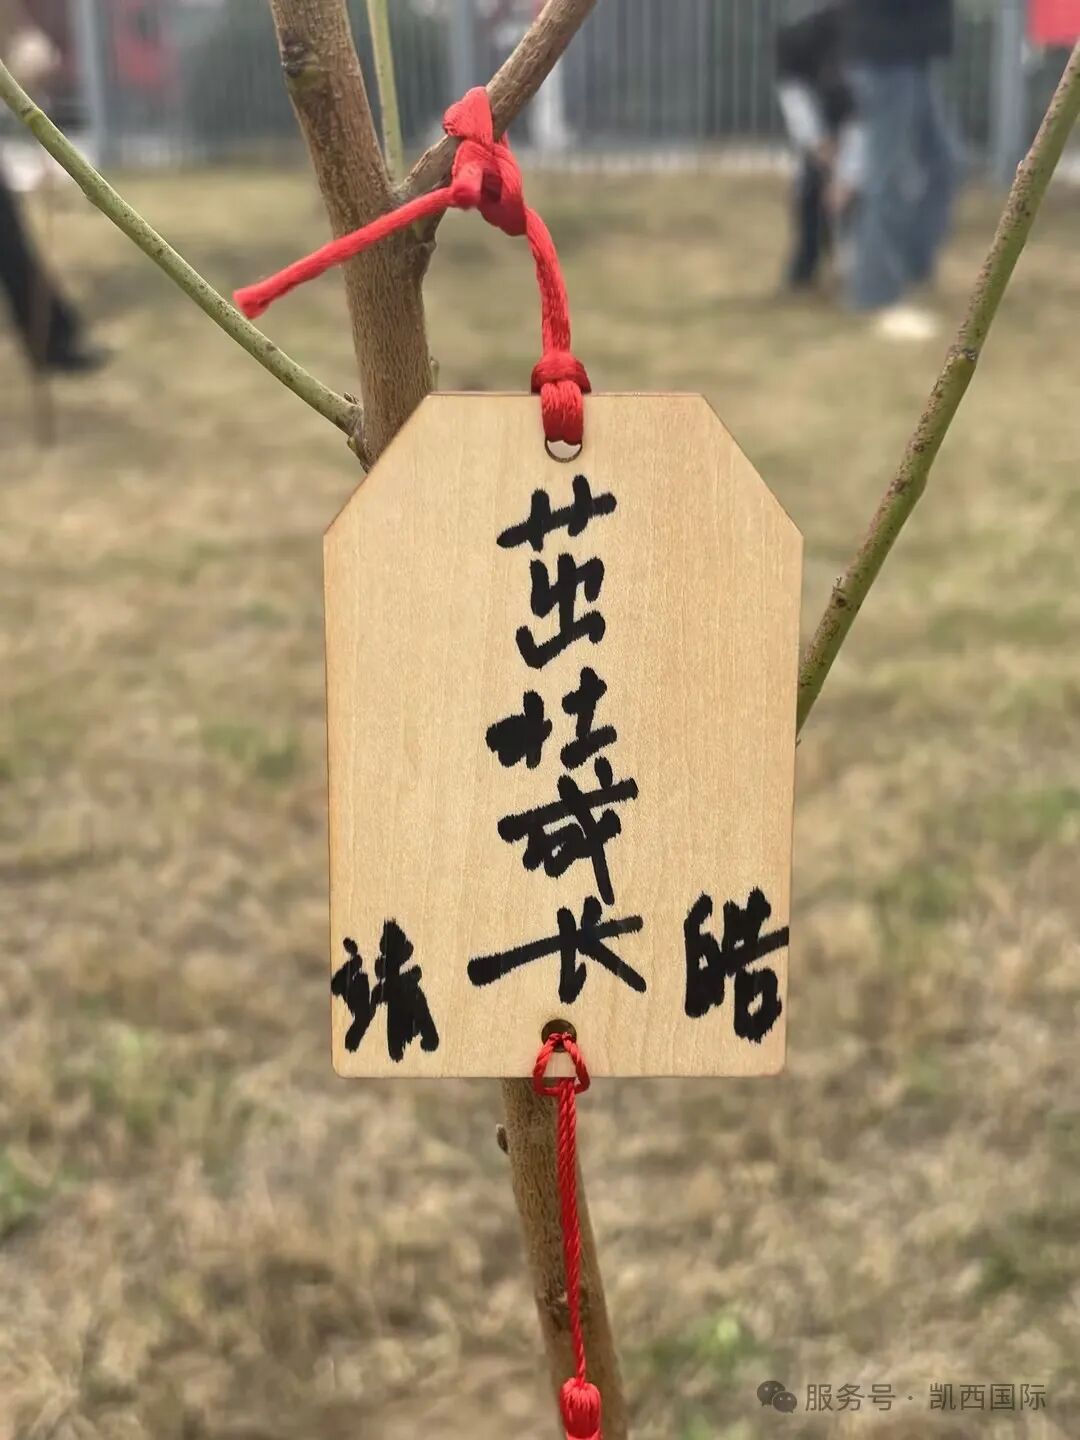 茁壮成长
靖
皓
服务号 · 凯西国际